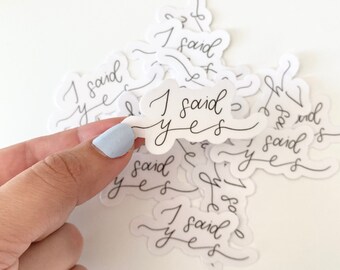 I said
yes
I said
yes
I said
yes
I said
yes
I said
yes
I said
yes